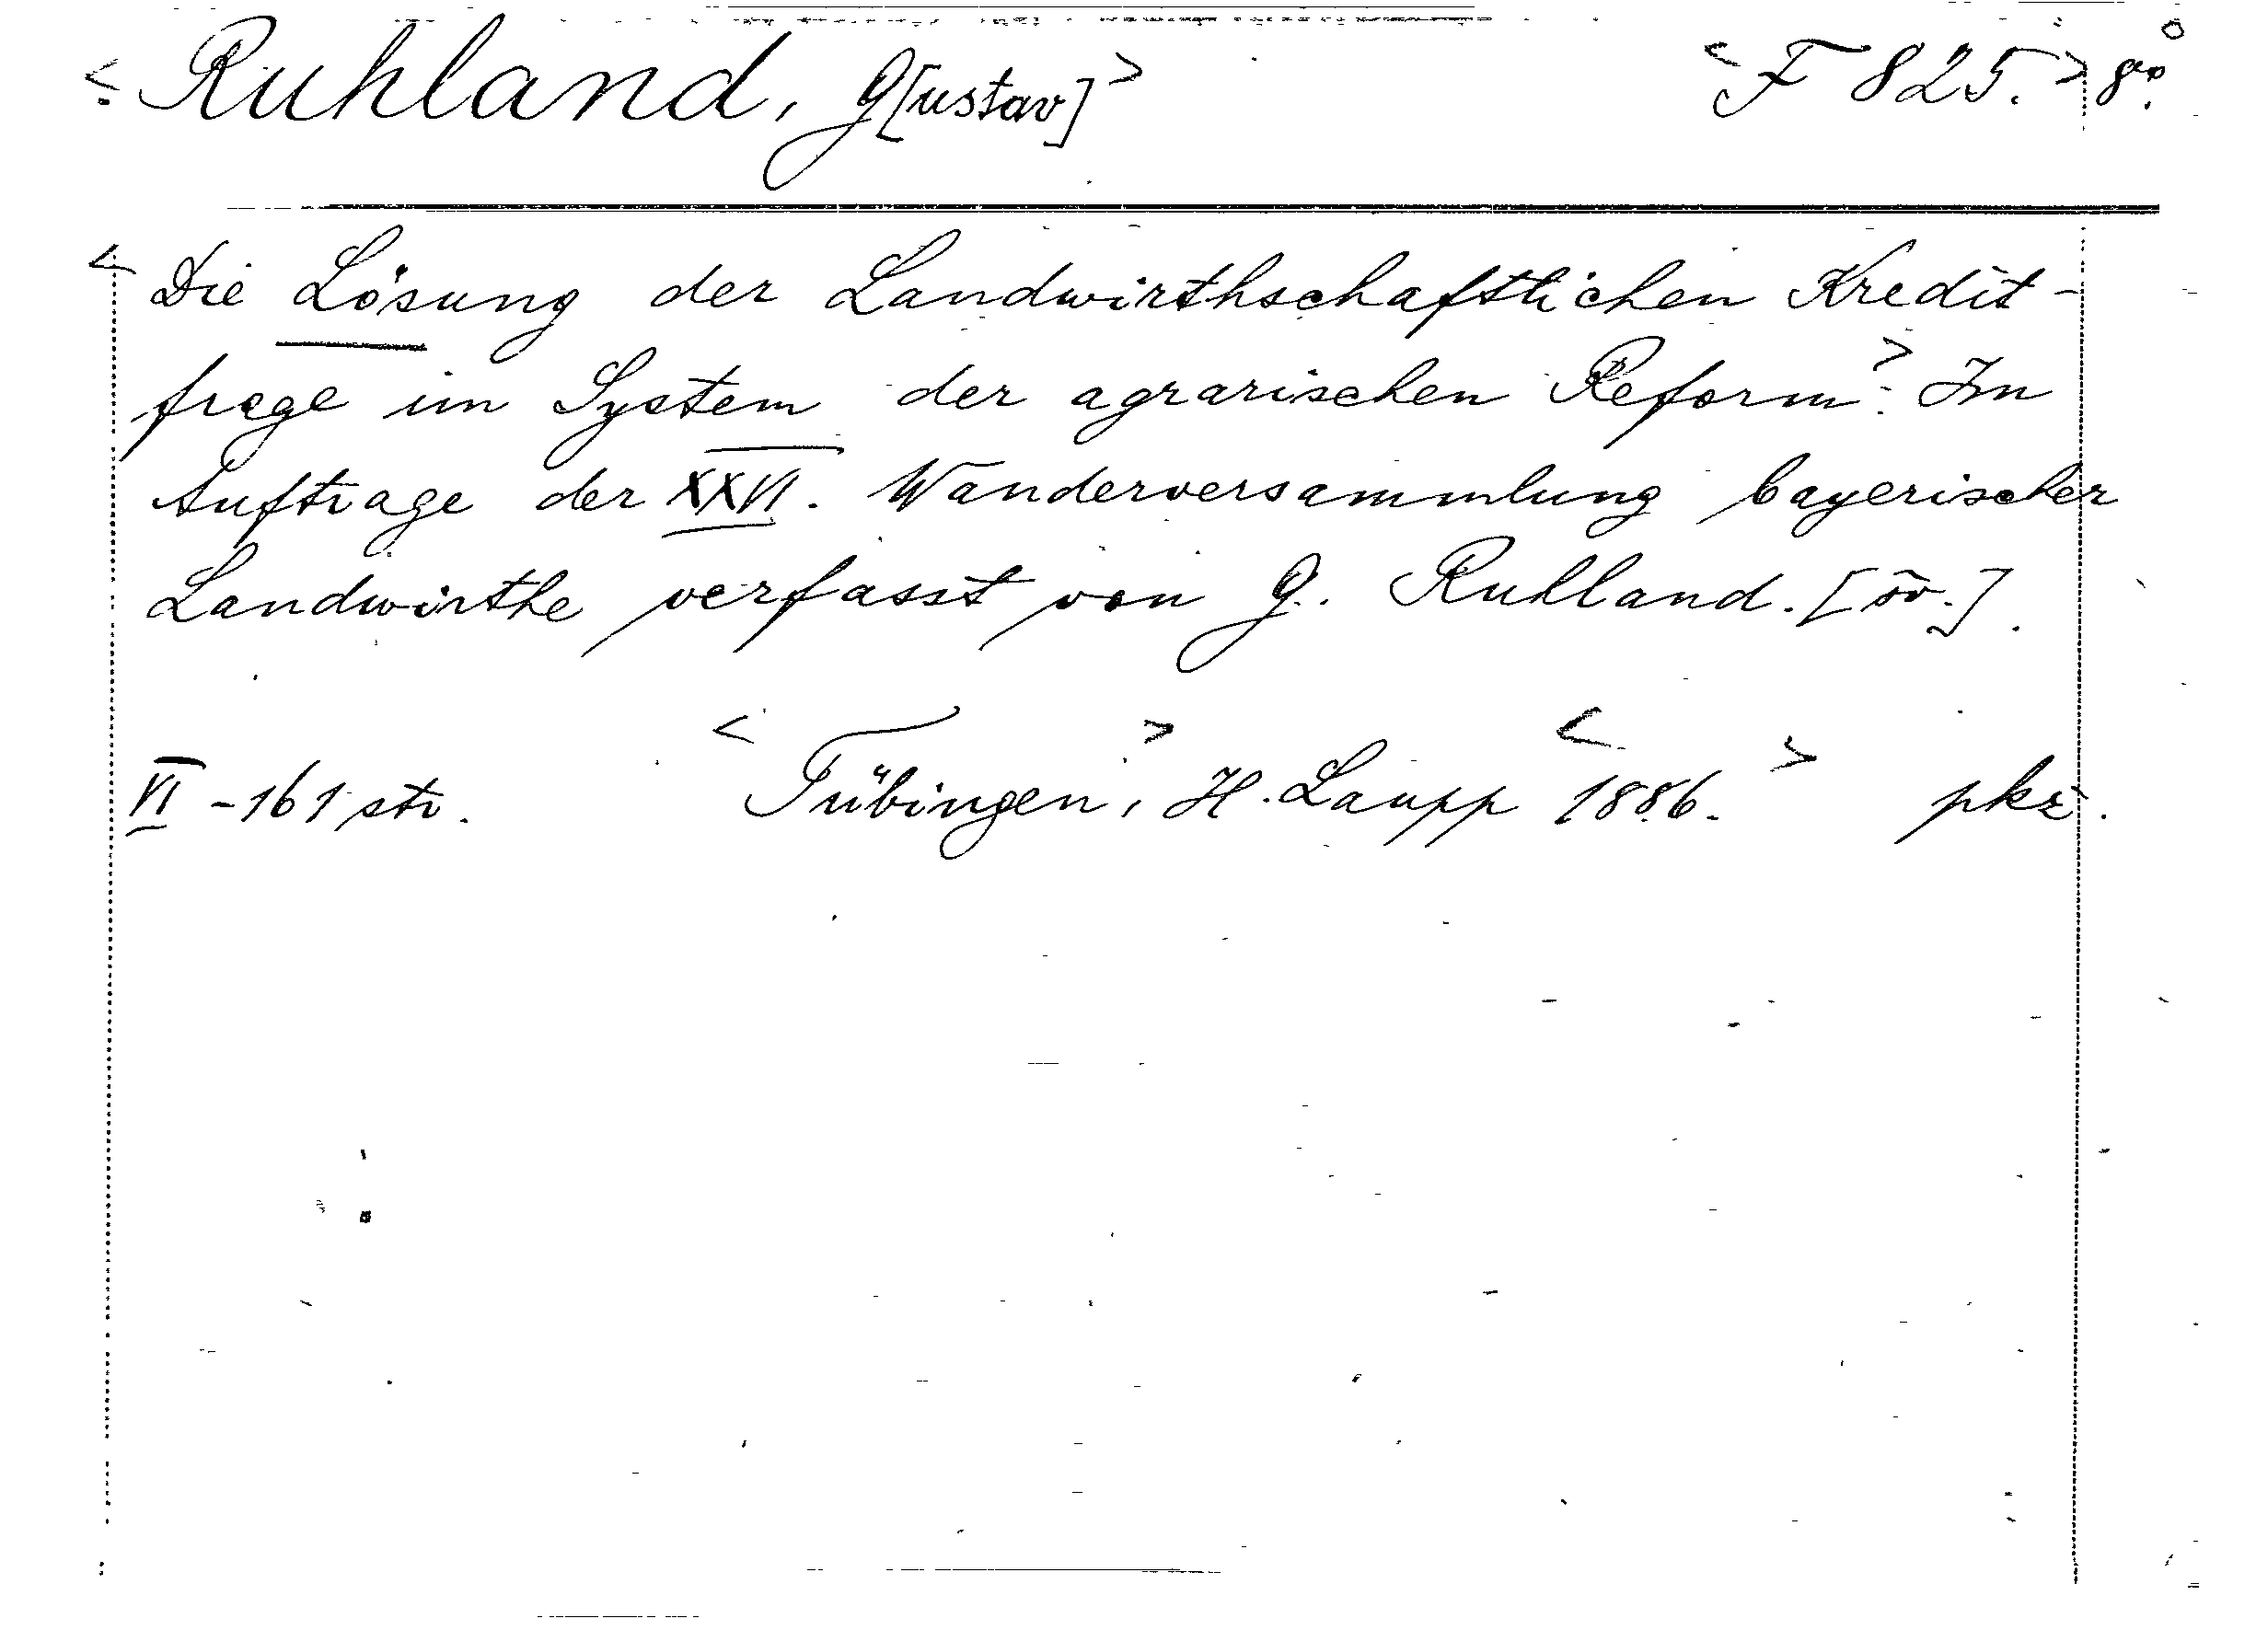 < Ruhland, G[ustav] > < F 825. > 8°.
< Die Lösung der Landwirthschaftlichen Kredit-
frage im System der agrarischen Reform >. Im
Auftrage der XXVI. Wanderversammlung bayerischer
Landwirthe verfasst von G. Ruhland.
VI-161 str. < Tübingen, > H. Laupp < 1886. >